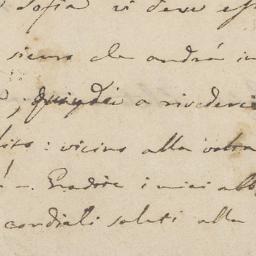 Sofia vi deve es
sicuro che andrà in
; quindi a rivederci
lito: vicino alla vostra
! -. Gradite i miei abb
cordiali saluti alla